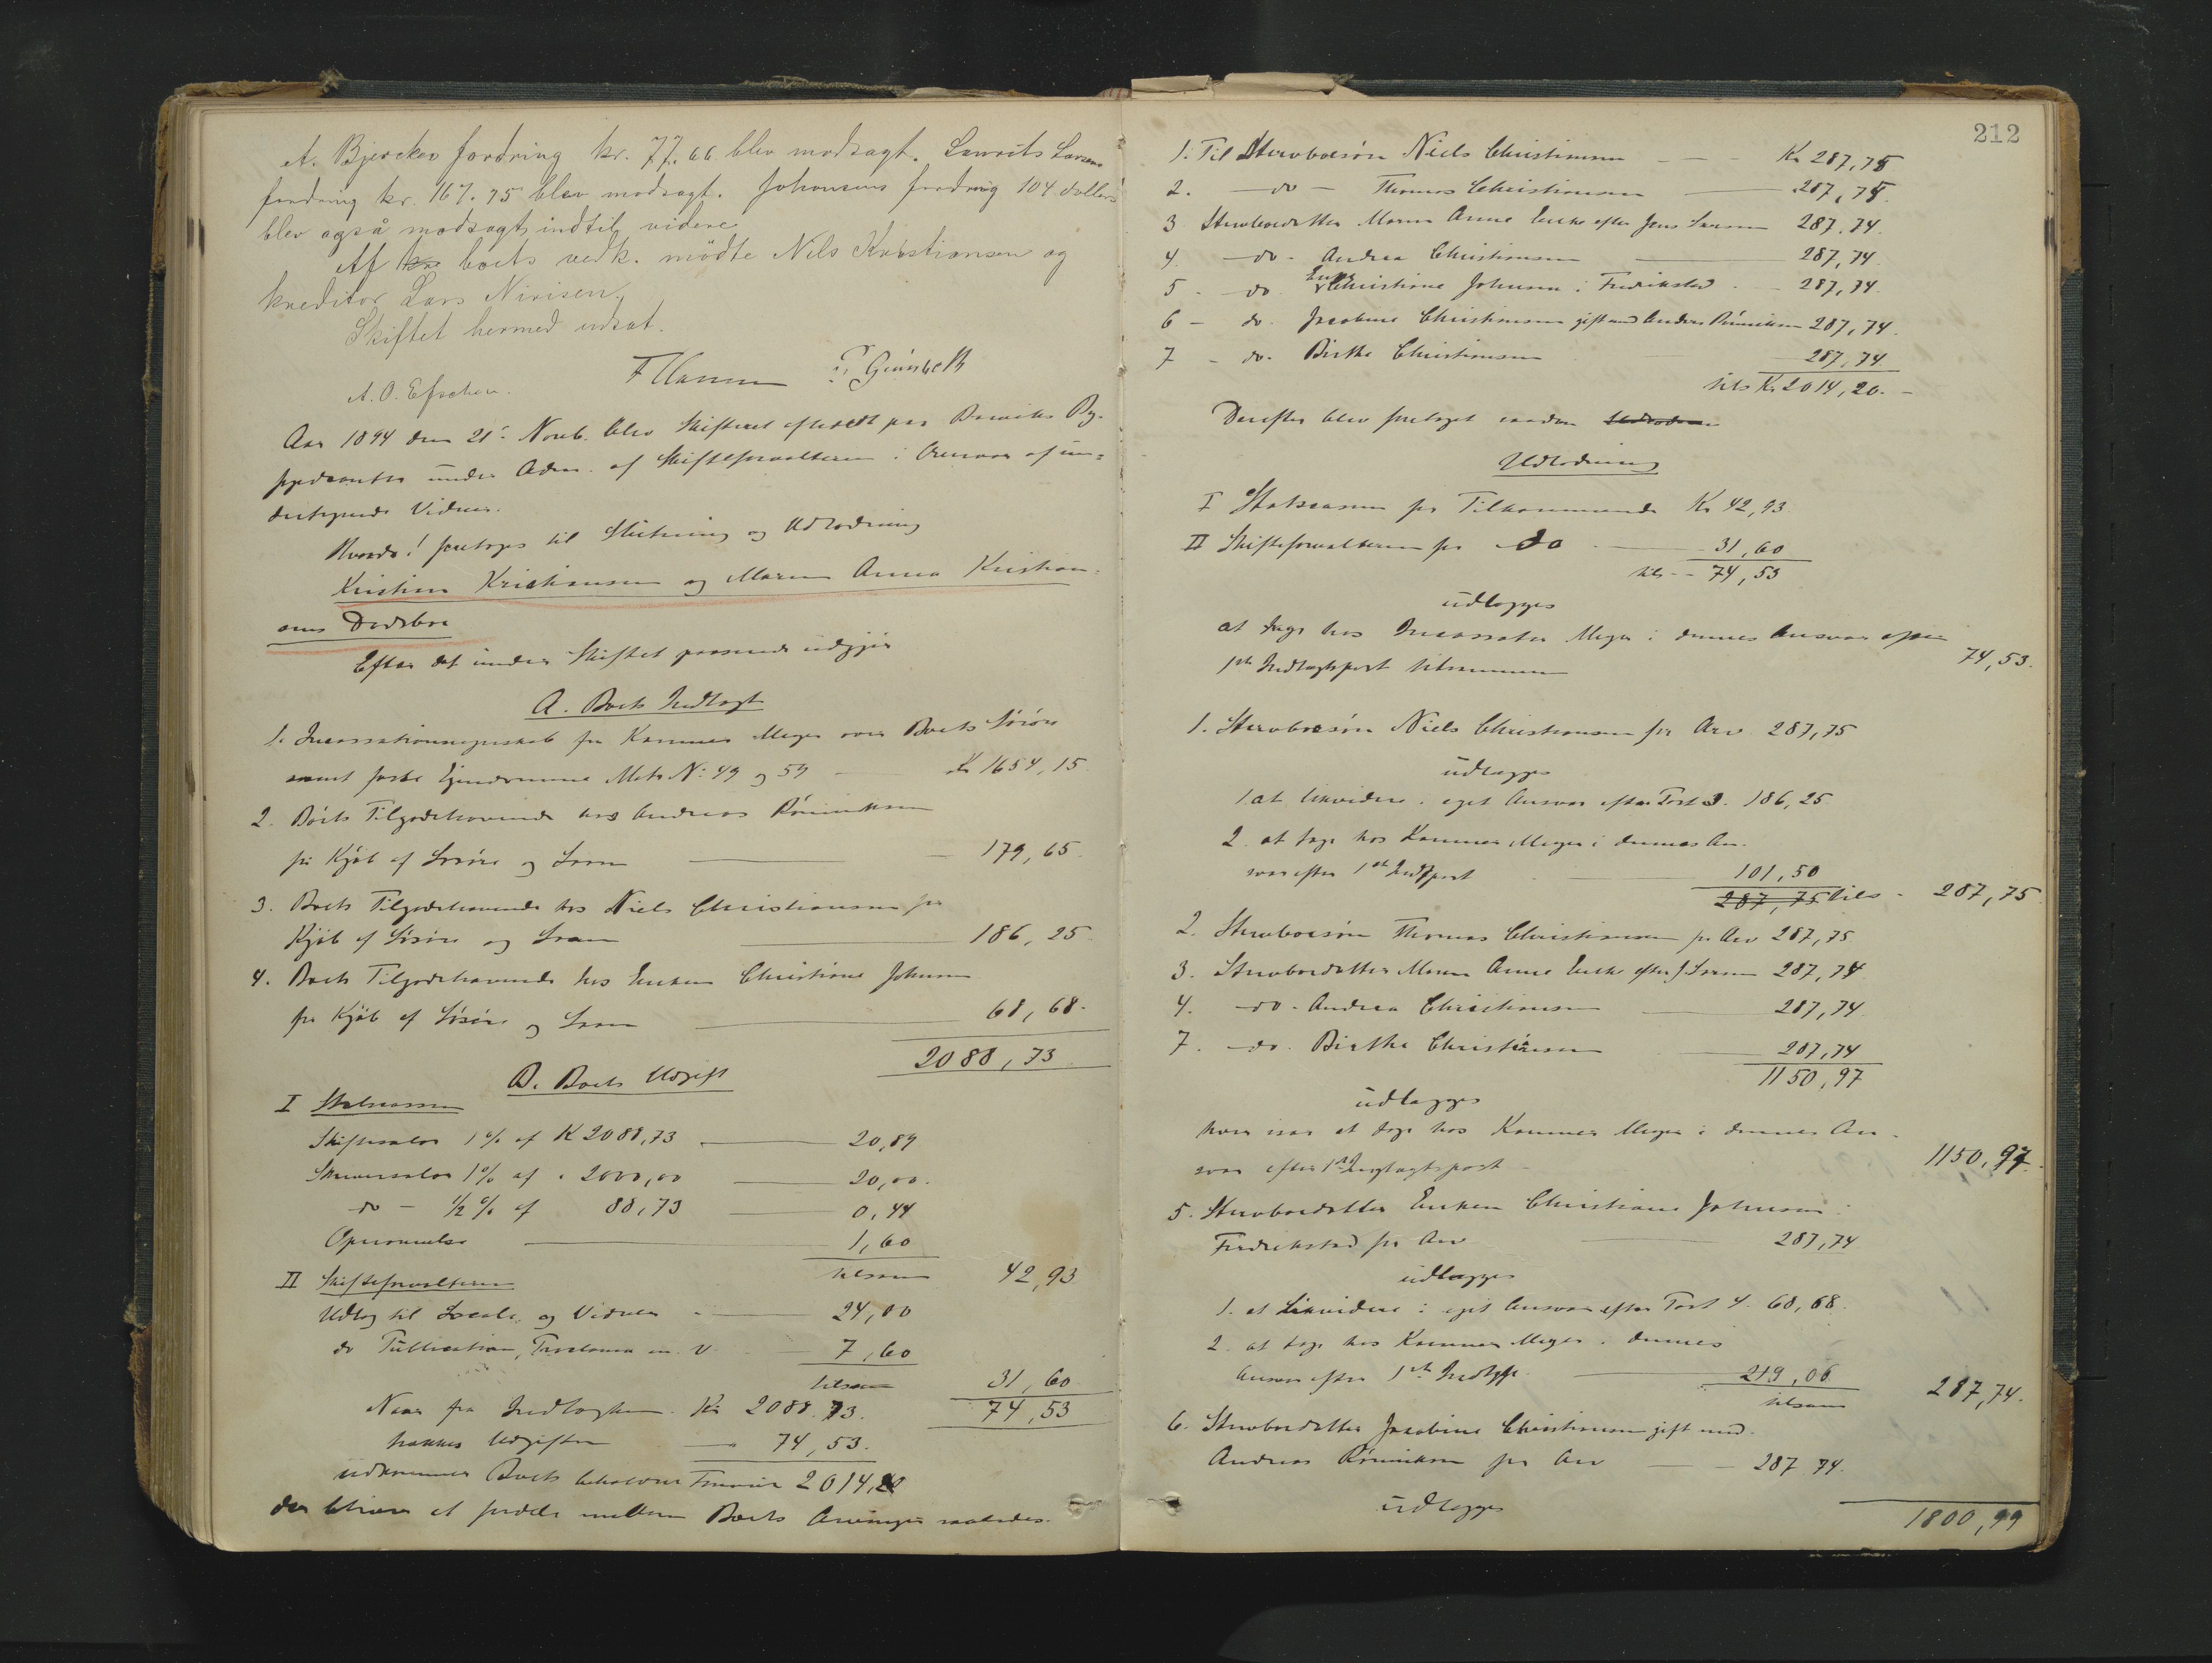 A. Bjerckes fordring kr. 77.66 blev modsagt. Laurits Larsens
fordring kr. 167.75 blev modsagt. Johansens fordring 104 dollars
blev også modsagt indtil videre
Af boets vedk. mödte Nils Kristiansen og
kreditor Lars Nirisen.
Skiftet hermed udsat.
A. O. Efschen.
Aar 1894 den 21' Novb. blev Skifteret afholdt paa
under Adm. af Skifteforvalteren i Overvær af un=
dertegnede Vidner.
Hvorda! foretoges til Slutning og Udlodning
Kristian Kristiansen og Maren Anna Kristian=
sens Dødsbo
Efter det under Skiftet passerede udgjør
A. Boets Indtægt
1. Incassationsregnskab fra Kæmner Meyer over Boets Løsøre
samt faste Ejendomme Matr N: 49 og 59 Kr 1654,15
2. Boets Tilgodehavende hos Andreas
for Kjøb af Løsøre og Laan 179,65
3. Boets Tilgodehavende hos Niels Christiansen for
Kjøb af Løsøre og Laan 186,25
4. Boets Tilgodehavende hos Enken Christiane Johnsen
for Kjøb af Løsøre og Laan 68,68
2088,73
B. Boets Udgift
I Statscassen
Skiftesalær 1 % af K 2088,73 20,89
Skriversalær 1% af " 2000,00 20,00
do - 1/2 % af 88,73 0,44
1,60
II Skifteforvalteren tilsam 42,93
Udlæg til Locale og Vidner 24,00
do Publication, m. v. 7,60
tilsam 31,60
Naar fra Indtægten Kr 2088.73. 74,53
trækkes Udgiften 74,53.
udkommer Boets beholdne Formue 2014,20
der bliver at fordele mellem Boets Arvinger saaledes.
212
1. Til Stervboesøn Niels Christiansen Kr 287,75
2. do - Thomas Christiansen 287,75
3 Stervboedatter Maren Anne Enke efter Jens Larsen 287.74
4. do - Andrea Christiansen 287,74
5 - do Enke Christiane Johnsen i Fredrikstad 287,74
6 - do. Jacobine Christiansen gift med Anders 287,74
7 - do. Birthe Christiansen 287,74
tils Kr 2014,20. -
Derefter blev foretaget saadan
Udlodning
I Statscassen for Tilkommende Kr 42,93
II Skifteforvalteren for do 31,60
tils - 74,53
udlægges
at tage hos Incassator Meyer i dennes Ansvar efter
1ste Indtægtspost tilsammen 74,53.
1. Stervboesøn Niels Christiansen for Arv 287,75
udlægges
1. at likvidere i eget Ansvar efter Post 3. 186,25
2. at tage hos Kæmner Meyer i dennes An-
svar efter 1ste Indtpost 101,50
287,75 tils - 287,75
2. Stervboesøn Thomas Christiansen for Arv 287,75
3. Stervboedatter Maren Anne Enke efter J Larsen 287,74
4. do - Andrea Christiansen 287,74
7. do. Birthe Christiansen 287,74
1150,97
udlægges
hver især at tage hos Kæmner Meyer i dennes An-
svar efter 1ste Indtægtspost 1150,97.
5. Stervboedatter Enken Christiane Johnsen i
Fredrikstad for Arv 287,74
udlægges
1. at Likvidere i eget Ansvar efter Post 4. 68,68
2. at tage hos Kæmner Meyer i dennes
Ansvar efter 1ste 219,06
tilsam 287,74.
6. Stervboedatter Jacobine Christiansen gift med
Andreas for Arv 287 74.
udlægges
1800,99